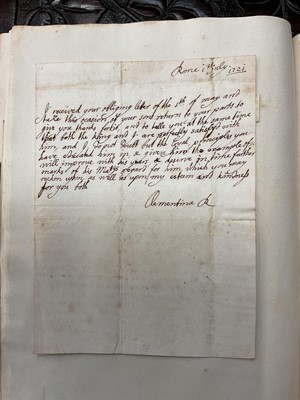 Rome 1st July 1721
I received your obliging letter of the 5th of may and
take this occasion of your sons return to your parts to
give you thanks for it, and to tell you at the same time
that both the King and I are perfectly satisfyd with
him, and I do not doubt but the Loyal principles you
have educated him in & given him the example of
will improve with his years, & deserve in time further
marks of his Majtys regard for him, which you may
reckon upon, as well as upon my esteem and kindness
for you both
Clementina R